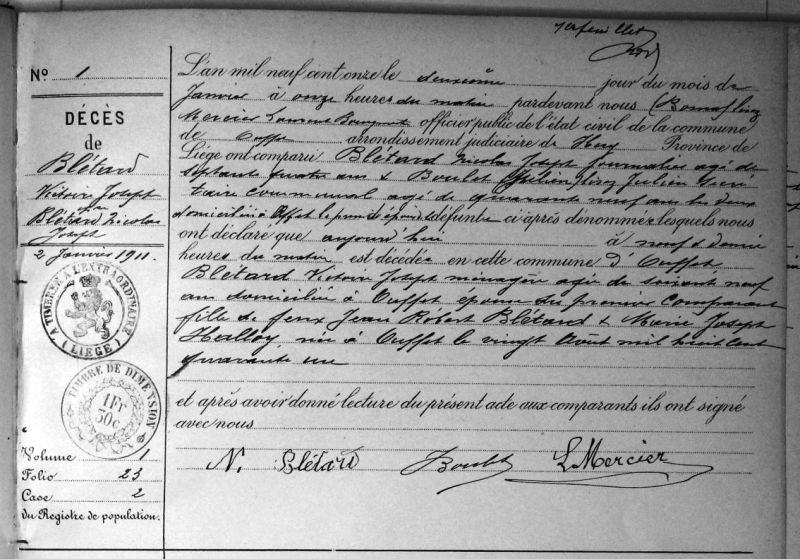 1er feuillet
No 1
DÉCÈS
de
Blétard
Victoire Joseph
Blétard Nicolas
Joseph
2 Janvier 1911.
A TIMBRER A L'EXTRAORDINAIRE
(LIÈGE)
TIMBRE DE DIMENSION
1 Fr
30 c
Volume 1
Folio 23
Case 2
du Registre de population.
L'an mil neuf cent onze le deuxième jour du mois de
Janvier à onze heures du matin pardevant nous
Mercier Laurent officier public de l'état civil de la commune
de Ouffet arrondissement judiciaire de Huy Province de
Liège ont comparu Blétard Nicolas Joseph Journalier agé de
septante quatre ans & Boulet Julien Secré
taire communal agé de quarante neuf ans les deux
domiciliés à Ouffet le premier époux de la défunte ci après dénommée lesquels nous
ont déclaré que aujourd'hui à neuf & demie
heures du matin est décédée en cette commune d'Ouffet
Blétard Victoire Joseph ménagère agée de soixante neuf
ans domiciliée à Ouffet épouse du premier comparant
fille de feux Jean Robert Blétard & Marie Joseph
Halloy, née à Ouffet le vingt Août mil huit cent
quarante un
et après avoir donné lecture du présent acte aux comparants ils ont signé
avec nous
N. Blétard Boulet L Mercier